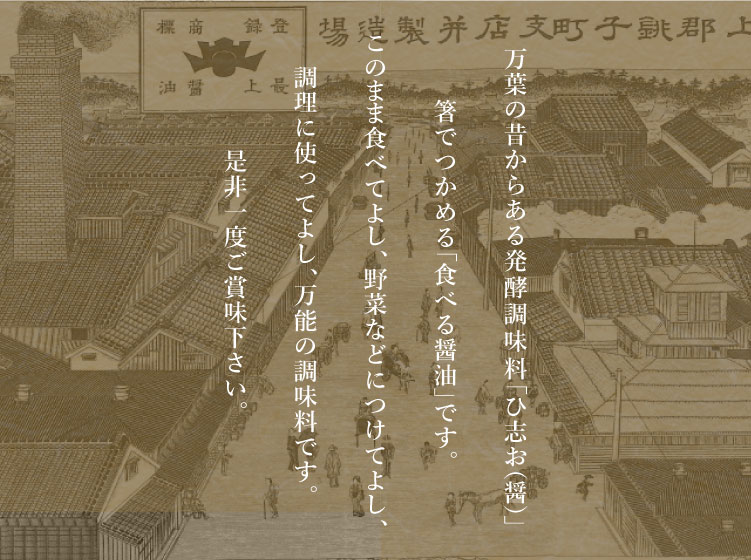 場造製并店支町子銚郡上
登録商標
最上醤油
万葉の昔からある発酵調味料「ひ志お(醤)」
箸でつかめる「食べる醤油」です。
このまま食べてよし、野菜などにつけてよし、
調理に使ってよし、万能の調味料です。
是非一度ご賞味下さい。